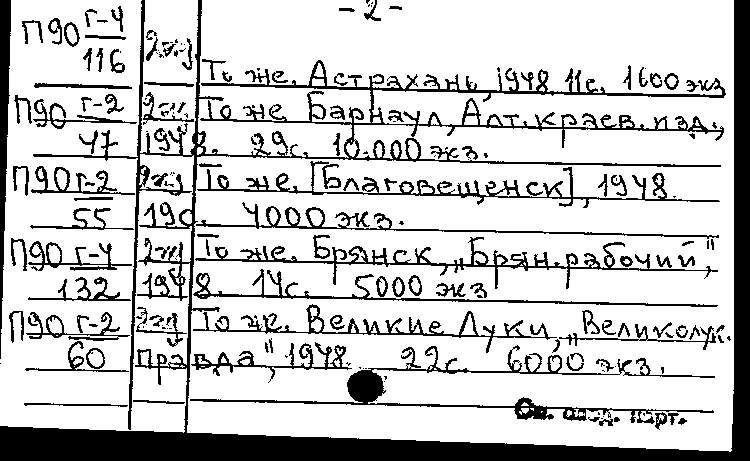 - 2 -
П90 г-4
116 2эк3. То же. Астрахань, 1948. 11с. 1600 экз
П90 г-2 2эк. То же. Барнаул, Алт. краев. изд.,
47 1948. 29с. 10.000 экз.
П90 г-2 То же. [Благовещенск], 1948.
55 19с. 4000 экз.
П90 г-4 То же. Брянск, „Брян. рабочий",
132 1948. 14с. 5000 экз
П90 г-2 То же. Великие Луки, „Великолук.
60 правда", 1948. 22с. 6000 экз.
См. след. карт.